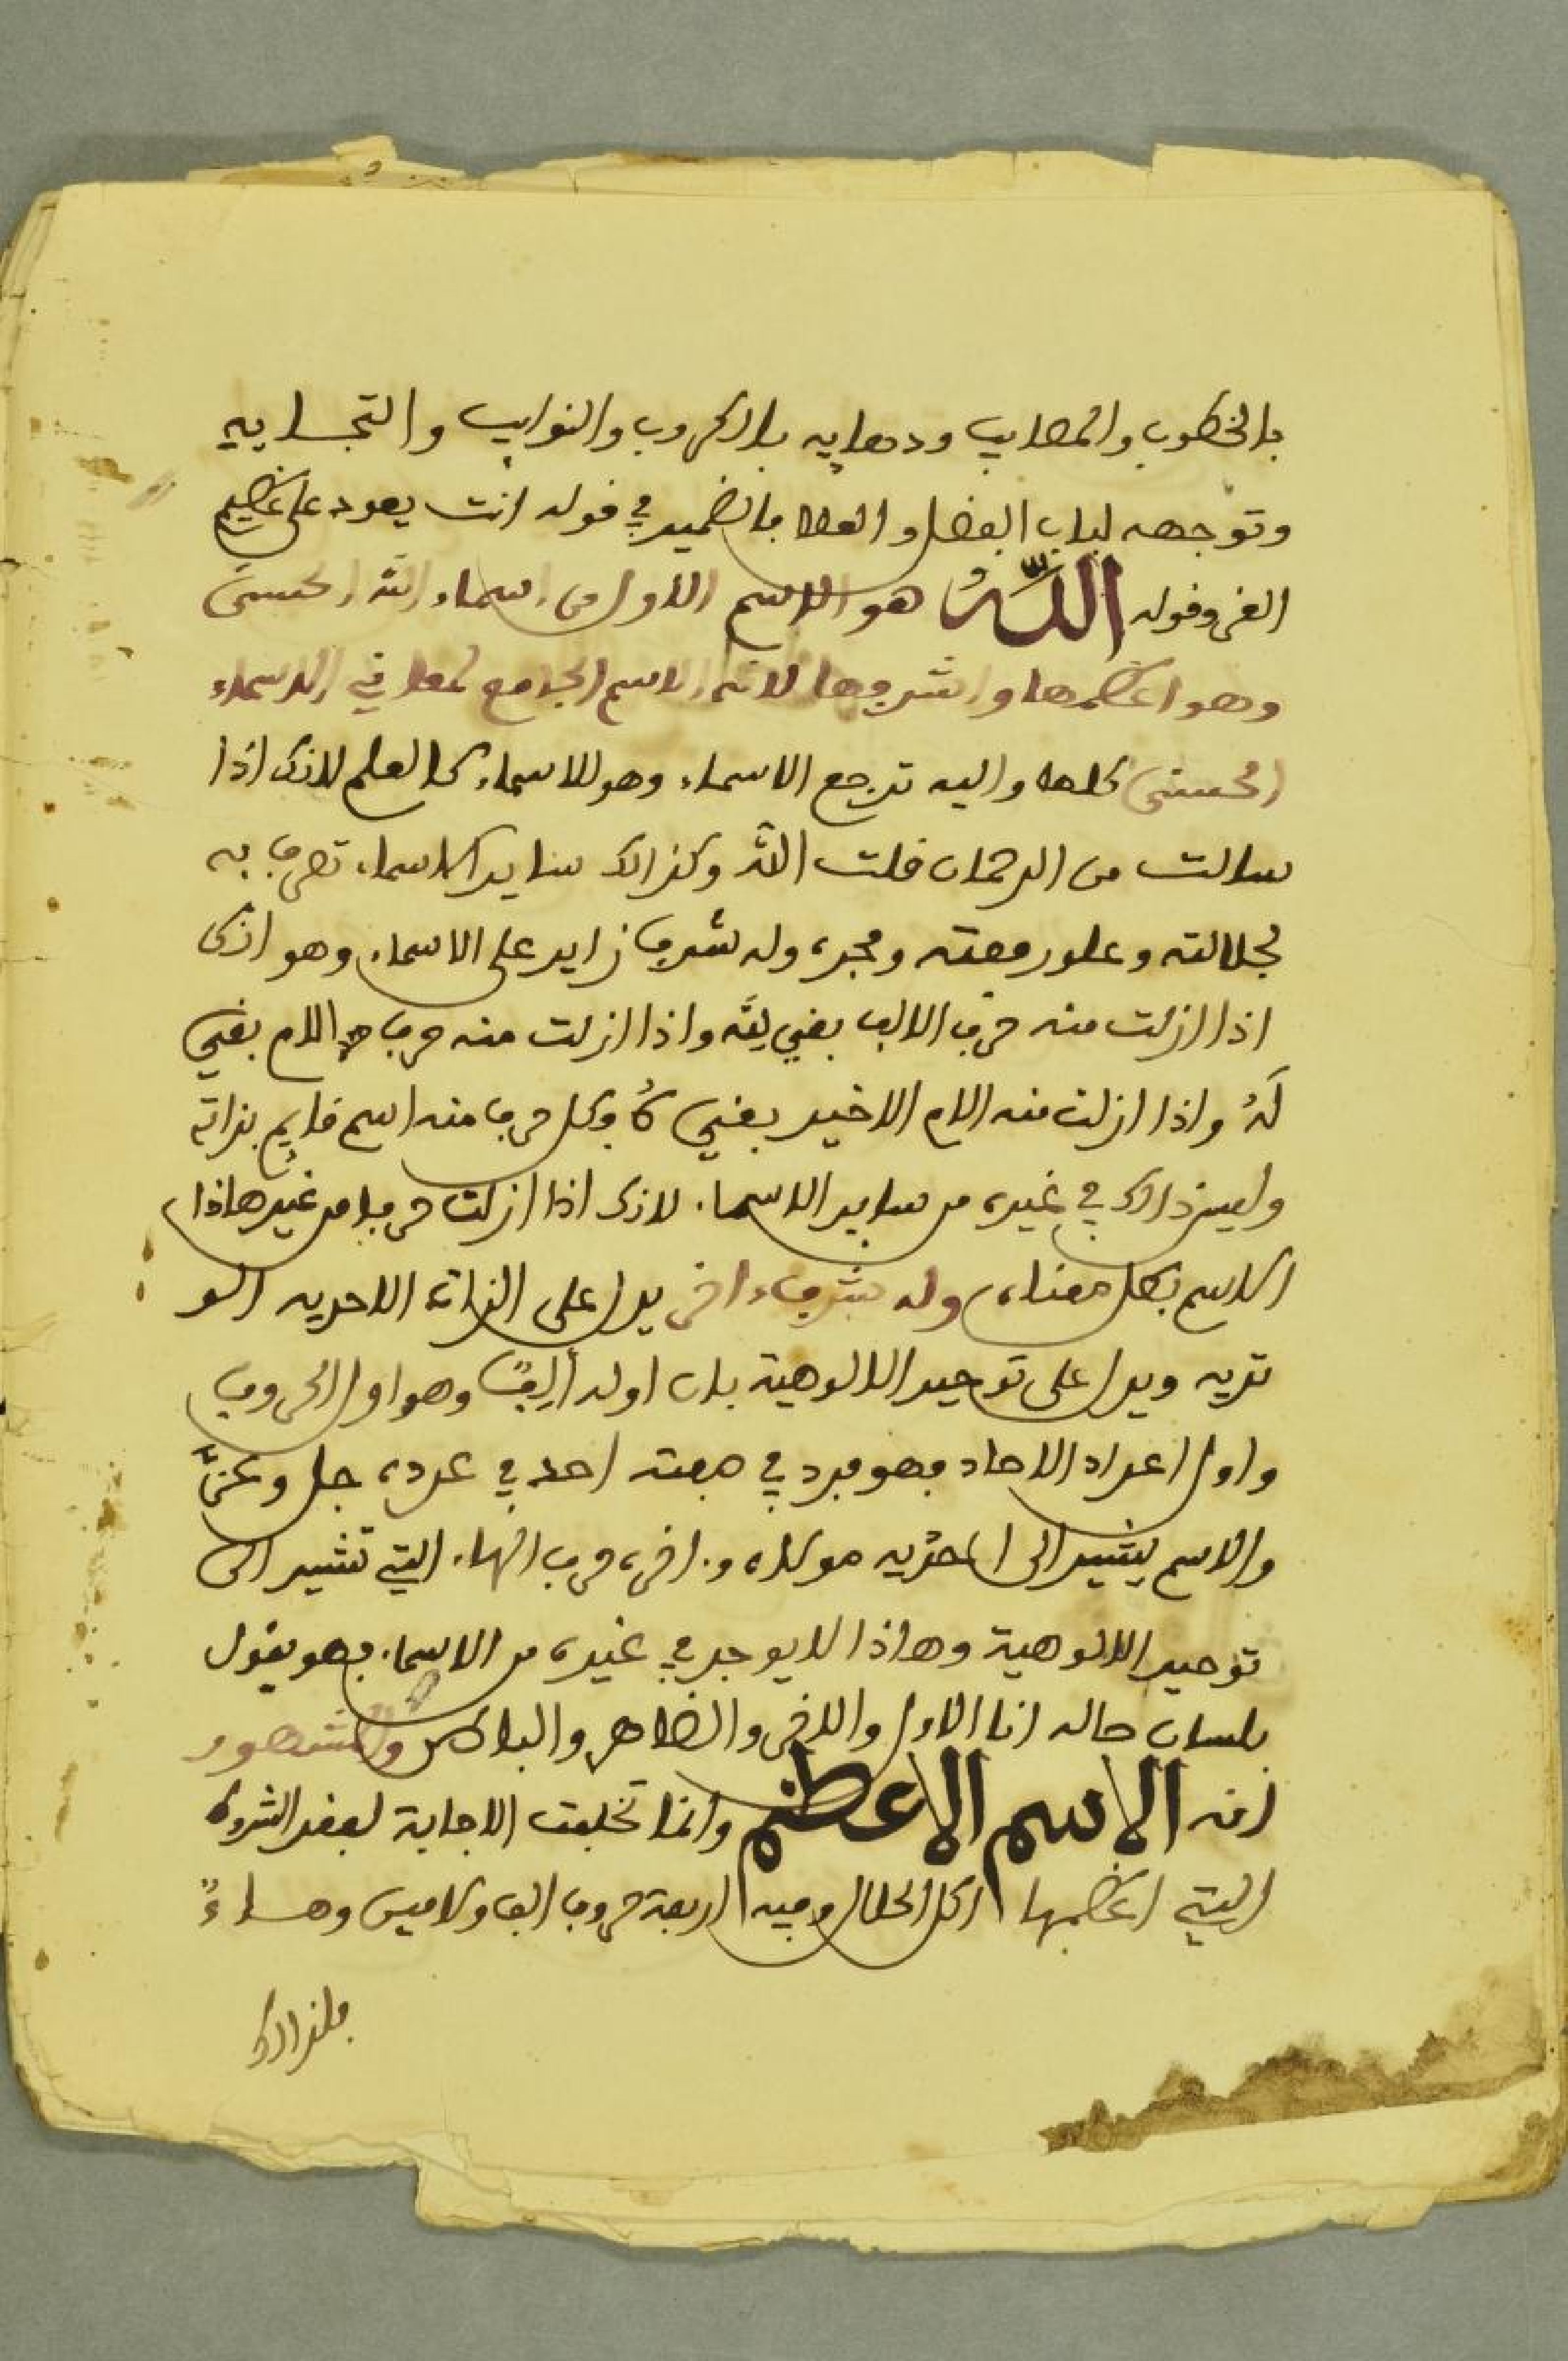 بالخطوب والمصايب ودهايه بالكروب والنوايب والتجايه
وتوجهه لباب الفضل والعطا فالضمير في قوله انت يعود على عظيم
الغنى وقوله اللَّهُ هو الاسم الاول من اسماء الله الحسنى
وهو اعظمها واشرفها لانه الاسم الجامع لمعاني الاسماء
الحسنى كلها واليه ترجع الاسماء وهو للاسماء كالعلم لانك اذا
سالت من الرحمان قلت الله وكذالك ساير الاسماء تعرف به
لجلالته وعلو رفعته ومجده وله شرف زايد على الاسماء وهو انك
اذا ازلت منه حرف الالف بقي لله واذا ازلت منه حرف اللام بقي
لَهُ واذا ازلت منه اللام الاخير بقي هُ وكل حرف منه اسم قايم بذاته
وليس ذالك في غيره من ساير الاسماء لانك اذا ازلت حرفا من غير هاذا
الاسم بطل معناه وله شرف اخر يدل على الذات الاحديه الو
تريه ويدل على توحيد الالوهية بان اوله ألِفً وهو اول الحروف
واول اعداد الاحاد فهو فرد في صفته احد في عدده جل وعزَّ
والاسم يشير الى و اخره حرف الهاء التي تشير الى
توحيد الالوهية وهاذا لا يوجد في غيره من الاسماء فهو يقول
بلسان حاله انا الاول والاخر والظاهر والباطن والمشهور
انه الاسم الاعظم وانما تخلفت الاجابة لفقد الشروط
التي اعظمها اكل الحلال وفيه اربعة حروف الف ولامين وهاءً
فلذالك